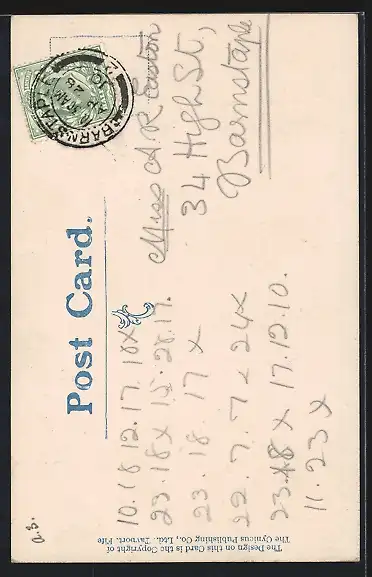 Post Card.
Miss A R Easton
34 High St,
Barnstaple
10.18 12.17. 18x
23.18x 15.20.19.
23. 18 17 x
22. 7. 7 x 24x
23.18 x 17.12.10.
11.23 x
The Design on this Card is the Copyright of
The Cynicus Publishing Co., Ltd. Tayport, Fife
BARNSTAPLE